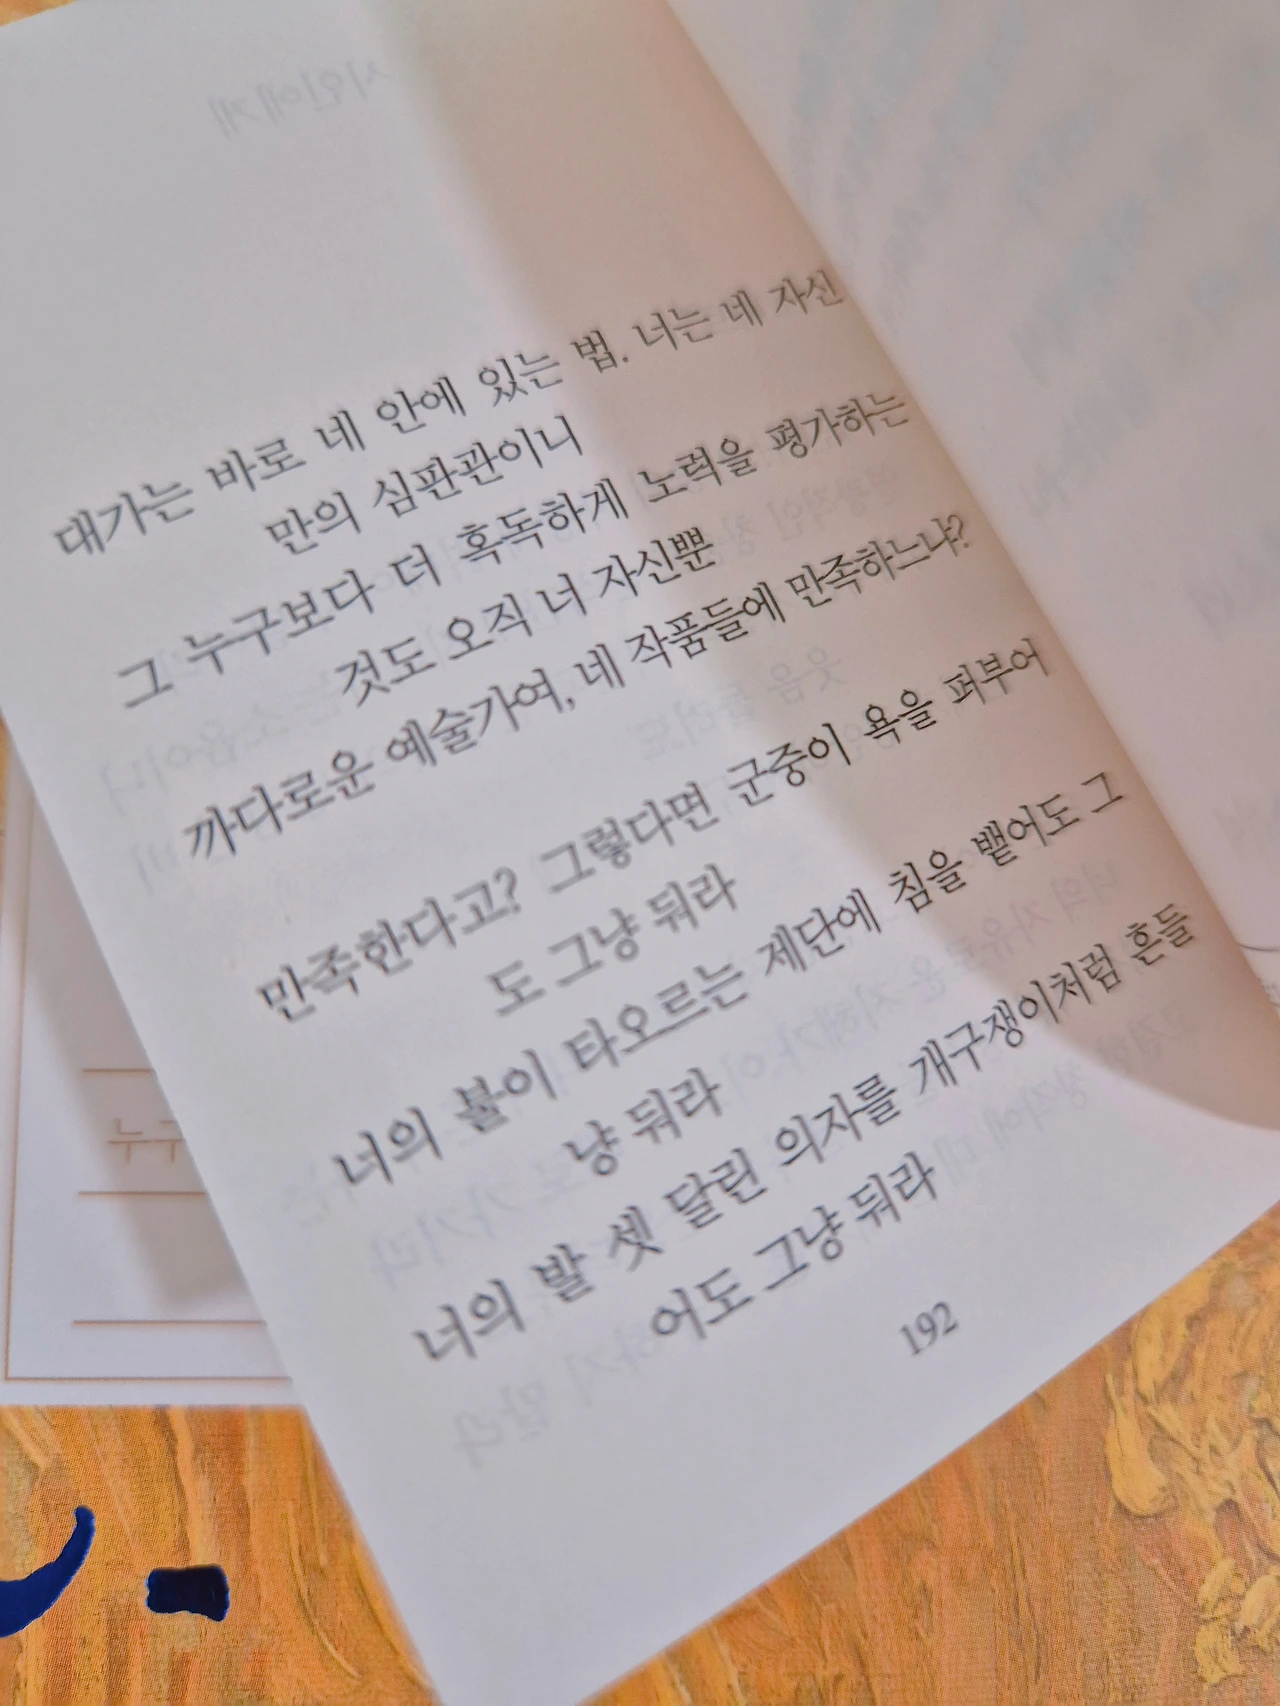 시인에게
대가는 바로 네 안에 있는 법. 너는 네 자신
만의 심판관이니
그 누구보다 더 혹독하게 노력을 평가하는
것도 오직 너 자신뿐
까다로운 예술가여, 네 작품들에 만족하느냐?
만족한다고? 그렇다면 군중이 욕을 퍼부어
도 그냥 둬라
너의 불이 타오르는 제단에 침을 뱉어도 그
냥 둬라
너의 발 셋 달린 의자를 개구쟁이처럼 흔들
어도 그냥 둬라
192